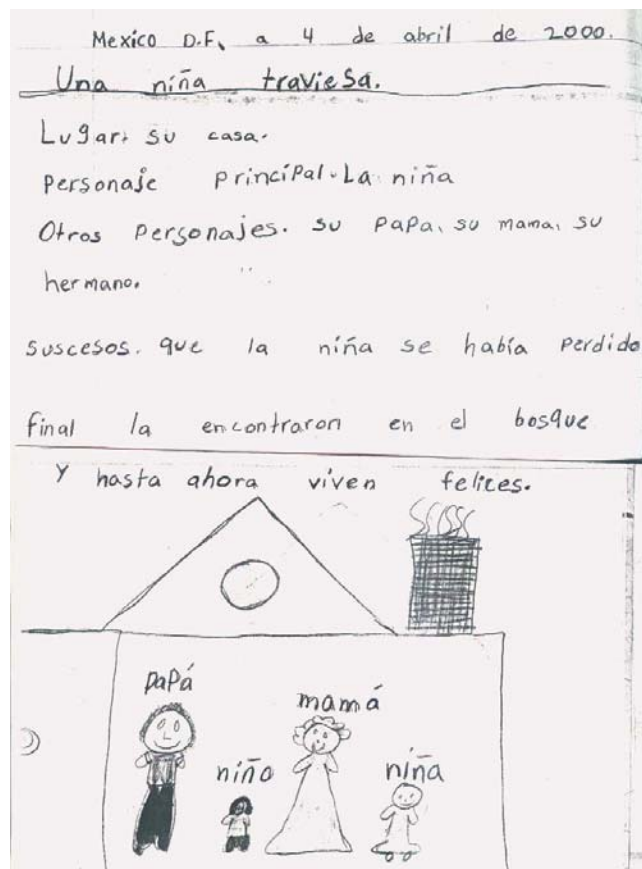 Mexico D.F. a 4 de abril de 2000.
Una niña traviesa.
Lugar: su casa.
Personaje principal. La niña
Otros personajes. su papa, su mama, su
hermano.
suscesos. que la niña se había perdido
final la encontraron en el bosque
Y hasta ahora viven felices.
papá
mamá
niño
niña